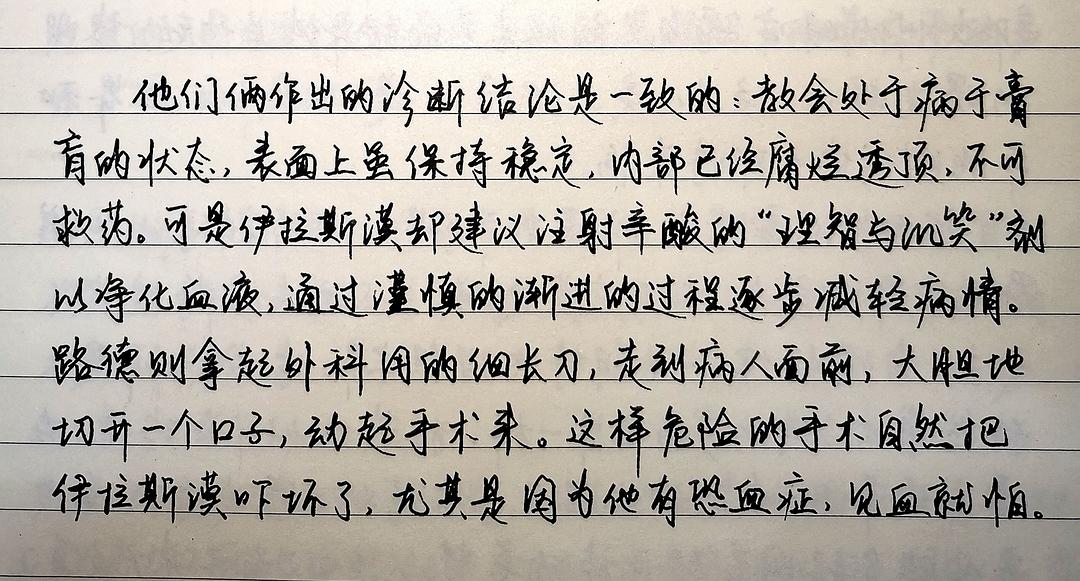 他们俩作出的诊断结论是一致的：教会处于病于膏
肓的状态，表面上虽保持稳定，内部已经腐烂透顶，不可
救药。可是伊拉斯漠却建议注射辛酸的“理智与讥笑”剂
以净化血液，通过谨慎的渐进的过程逐步减轻病情。
路德则拿起外科用的细长刀，走到病人面前，大胆地
切开一个口子，动起手术来。这样危险的手术自然把
伊拉斯漠吓坏了，尤其是因为他有恐血症，见血就怕。